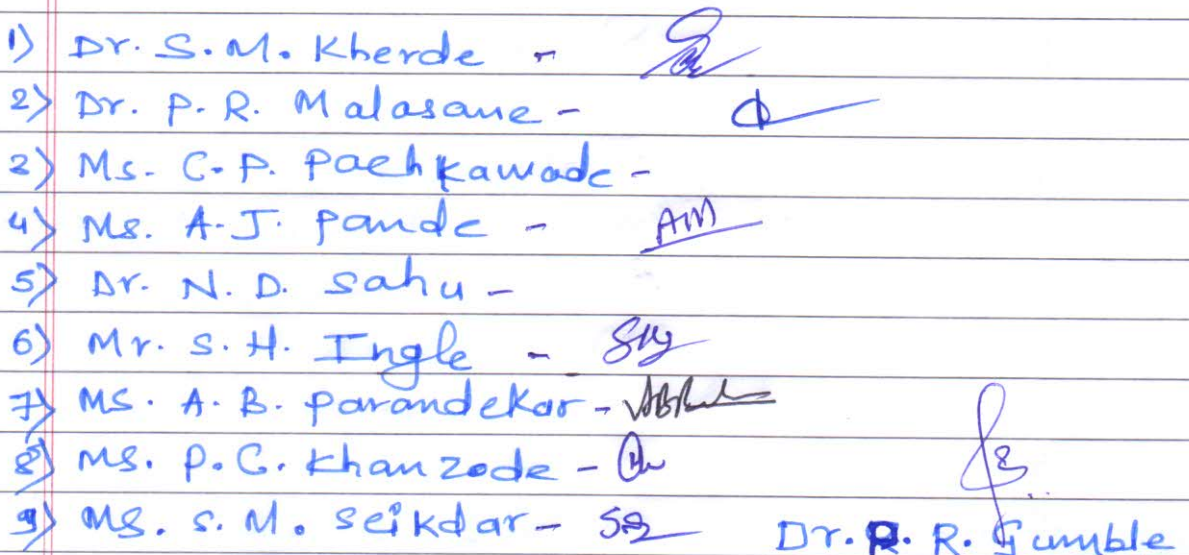 1) Dr. S. M. Kherde -
2) Dr. P. R. Malasane -
3) Ms. C. P. Pachkawade -
4) Ms. A. J. Pande -
5) Dr. N. D. Sahu -
6) Mr. S. H. Ingle -
7) Ms. A. B. Parandekar -
8) Ms. P. C. Khanzode -
9) Ms. S. M. Seikdar -
Dr. R. R. Gumble